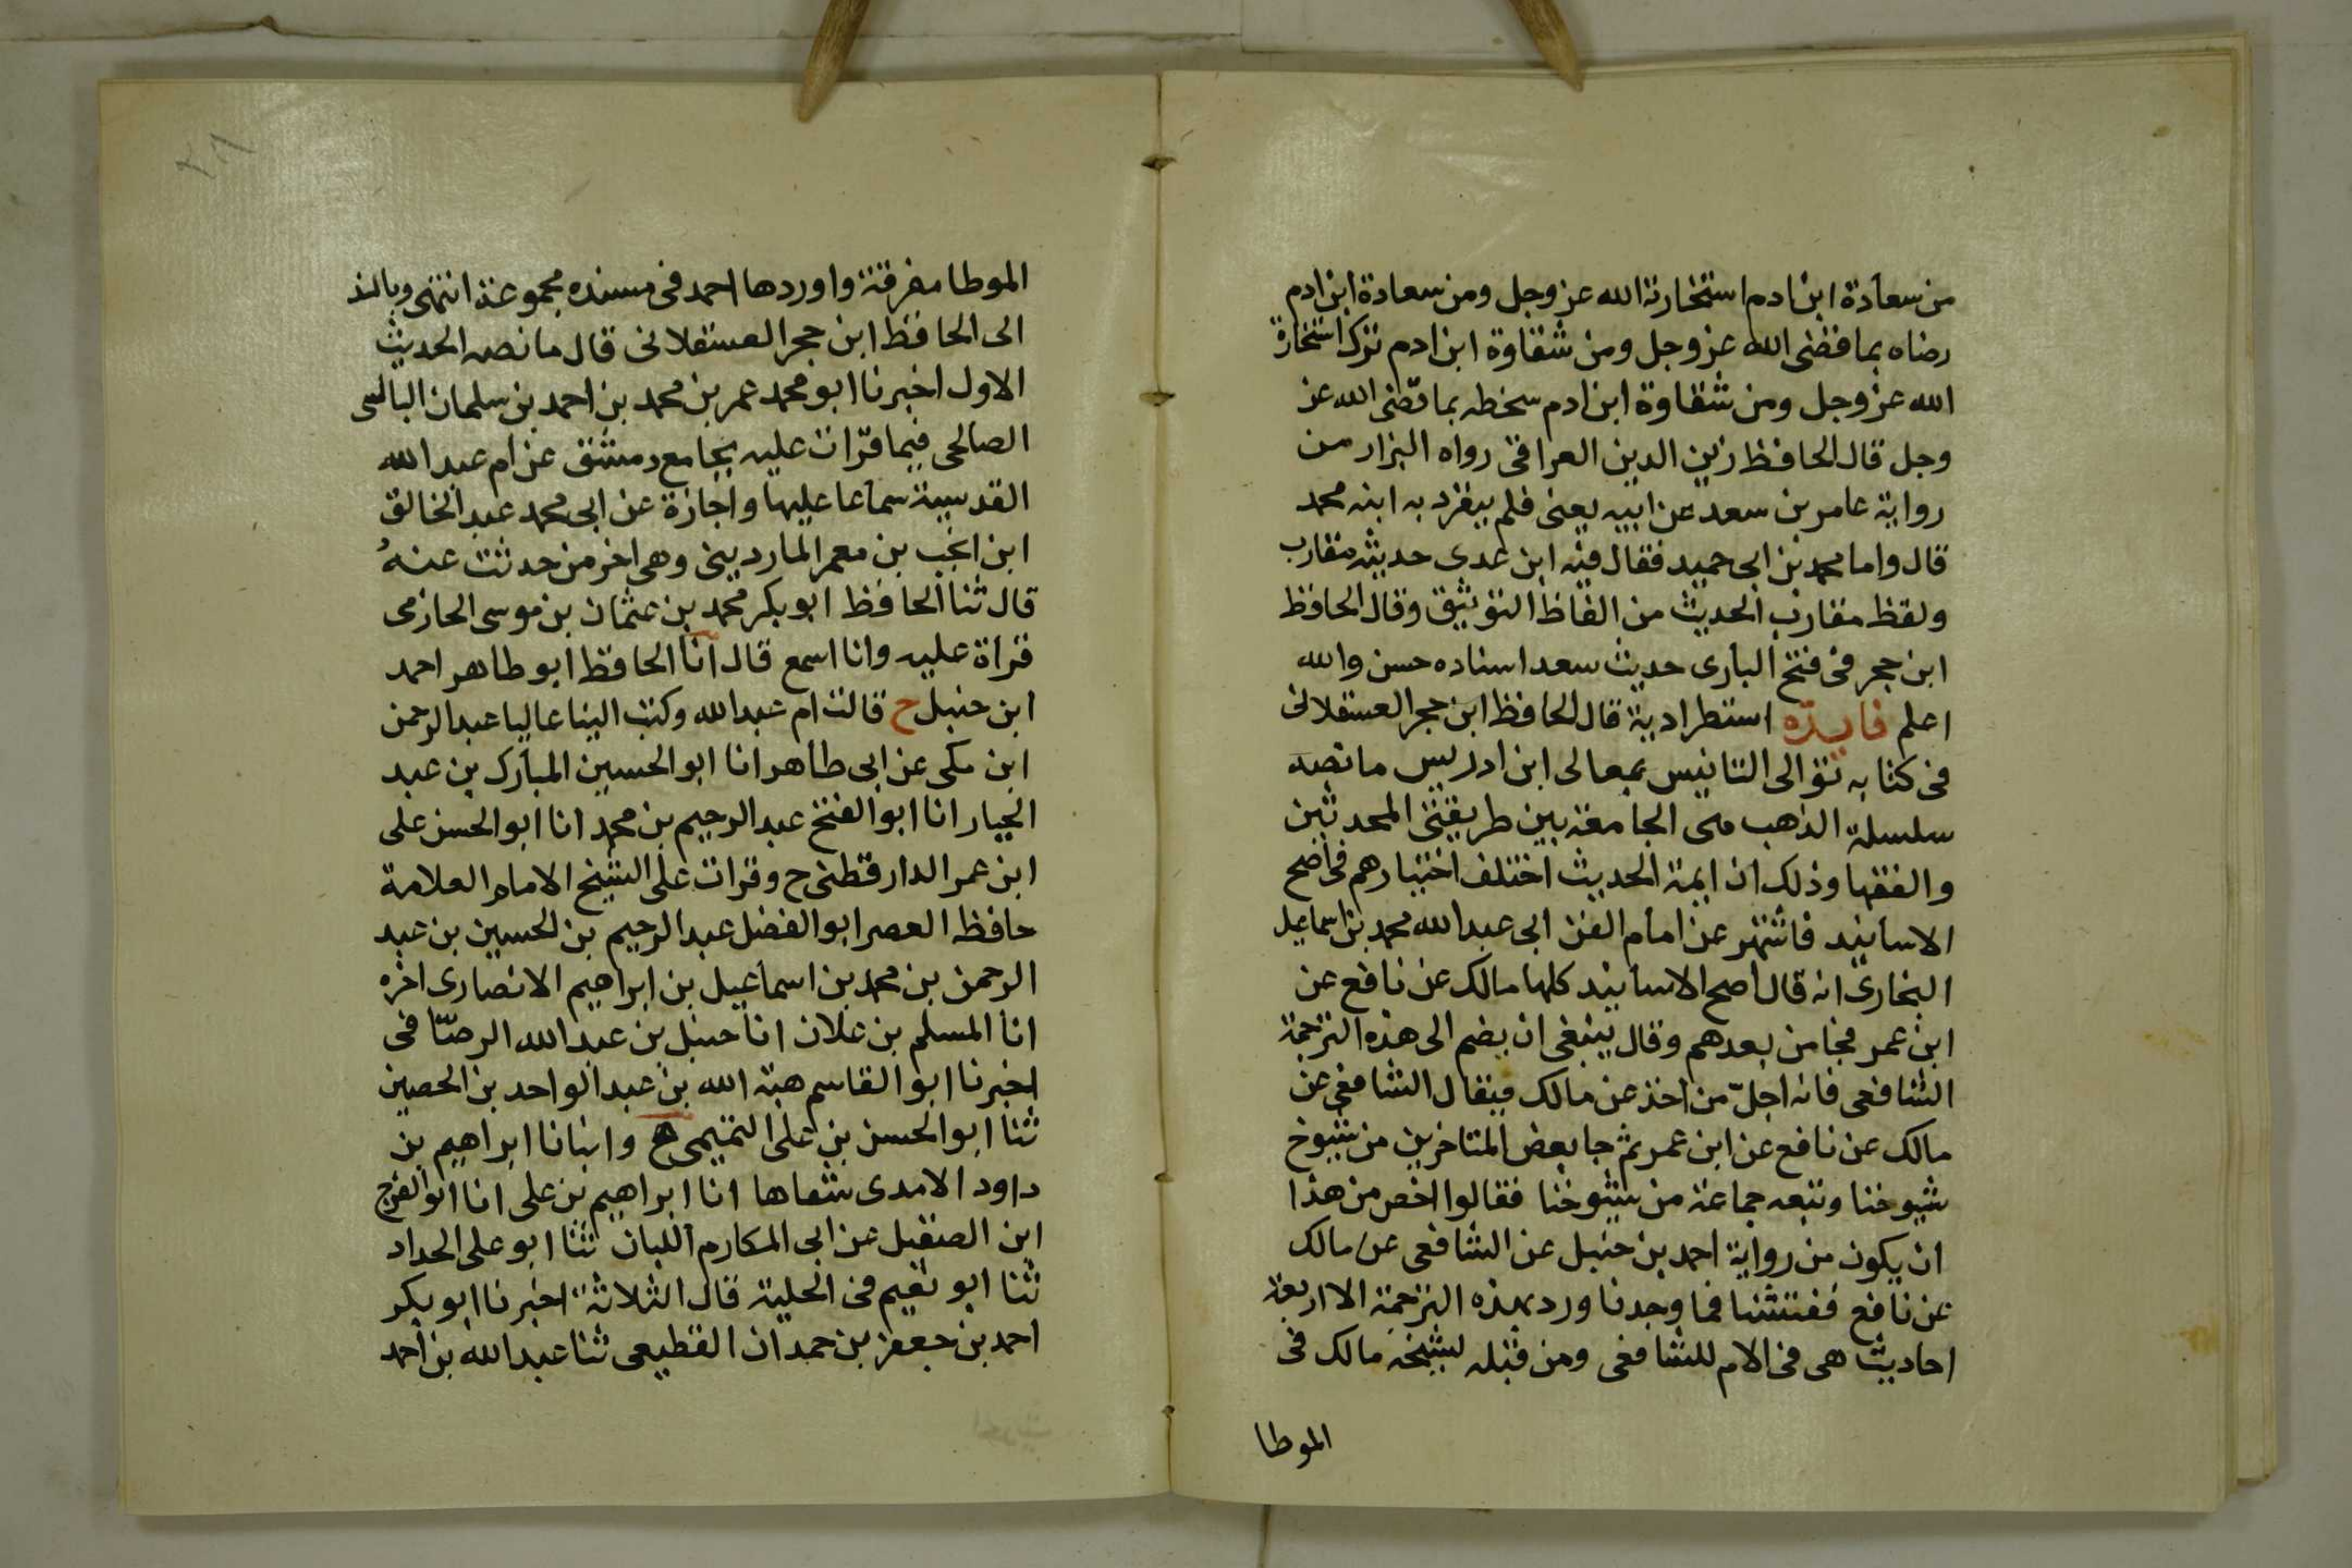 من سعادة ابن ادم استخارته الله عز وجل ومن سعادة ابن ادم
رضاه بما قضى الله عز وجل ومن شقاوة ابن ادم تركه استخارة
الله عز وجل ومن شقاوة ابن ادم سخطه بما قضى الله عز
وجل قال الحافظ زين الدين العراقى رواه البزار من
رواية عامر بن سعد عن ابيه يعنى فلم ينفرد به ابنه محمد
قال واما محمد بن ابى حميد فقال فيه ابن عدى حديثه متقارب
ولفظ مقارب الحديث من الفاظ التوثيق وقال الحافظ
ابن حجر فى فتح البارى حديث سعد اسناده حسن والله
اعلم فايدة استطرادية قال الحافظ ابن حجر العسقلانى
فى كتابه توالى التانيس بمعالى ابن ادريس ما نصه
سلسلة الذهب هى الجامعة بين طريقتى المحدثين
والفقها وذلك ان ايمة الحديث اختلف اختيارهم فى اصح
الاسانيد فاشتهر عن امام الفن ابى عبد الله محمد بن اسماعيل
البخارى انه قال اصح الاسانيد كلها مالك عن نافع عن
ابن عمر فجا من بعدهم وقال ينبغى ان يضم الى هذه الترجمة
الشافعى فانه اجلّ من اخذ عن مالك فيقال الشافعى عن
مالك عن نافع عن ابن عمر ثم جا بعض المتاخرين من شيوخ
شيوخنا وتبعه جماعة من شيوخنا فقالوا اخص من هذا
ان يكون من رواية احمد بن حنبل عن الشافعى عن مالك
عن نافع ففتشنا فما وجدنا ورد بهذه الترجمة الا اربعة
احاديث هى فى الام للشافعى ومن قبله لشيخه مالك فى
الموطا
الموطا مفرقة واوردها احمد فى مسنده مجموعة انتهى وبالسند
الى الحافظ ابن حجر العسقلانى قال ما نصه الحديث
الاول اخبرنا ابو محمد عمر بن محمد بن احمد بن سلمان البالسى
الصالحى فيما قرات عليه بجامع دمشق عن ام عبد الله
القدسية سماعا عليها واجازة عن ابى محمد عبد الخالق
ابن انجب بن معمر الماردينى وهى اخر من حدثت عنه
قال ثنا الحافظ ابو بكر محمد بن عثمان بن موسى الحازمى
قراة عليه وانا اسمع قال انا الحافظ ابو طاهر احمد
ابن حنبل ح قالت ام عبد الله وكتب الينا عاليا عبد الرحمن
ابن مكى عن ابى طاهر انا ابو الحسين المبارك بن عبد
الجبار انا ابو الفتح عبد الرحيم بن محمد انا ابو الحسن على
ابن عمر الدارقطنى ح وقرات على الشيخ الامام العلامة
حافظ العصر ابو الفضل عبد الرحيم بن الحسين بن عبد
الرحمن بن محمد بن اسماعيل بن ابراهيم الانصارى اخره
انا المسلم بن علان انا حنبل بن عبد الله الرصّافى
اخبرنا ابو القاسم هبة الله بن عبد الواحد بن الحصين
ثنا ابو الحسن بن على التميمى ح وانبانا ابراهيم بن
داود الامدى شفاها انا ابراهيم بن على انا ابو الفرج
ابن الصقيل عن ابى المكارم اللبان ثنا ابو على الحداد
ثنا ابو نعيم فى الحلية قال الثلاثة اخبرنا ابو بكر
احمد بن جعفر بن حمدان القطيعى ثنا عبد الله بن احمد